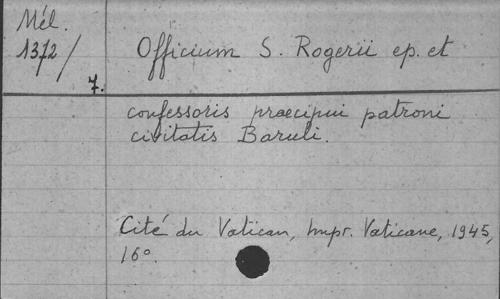 Mél.
1372/
7.
Officium S. Rogerii ep. et
confessoris præcipui patroni
civitatis Baruli.
Cité du Vatican, Impr. Vaticane, 1945,
16°.